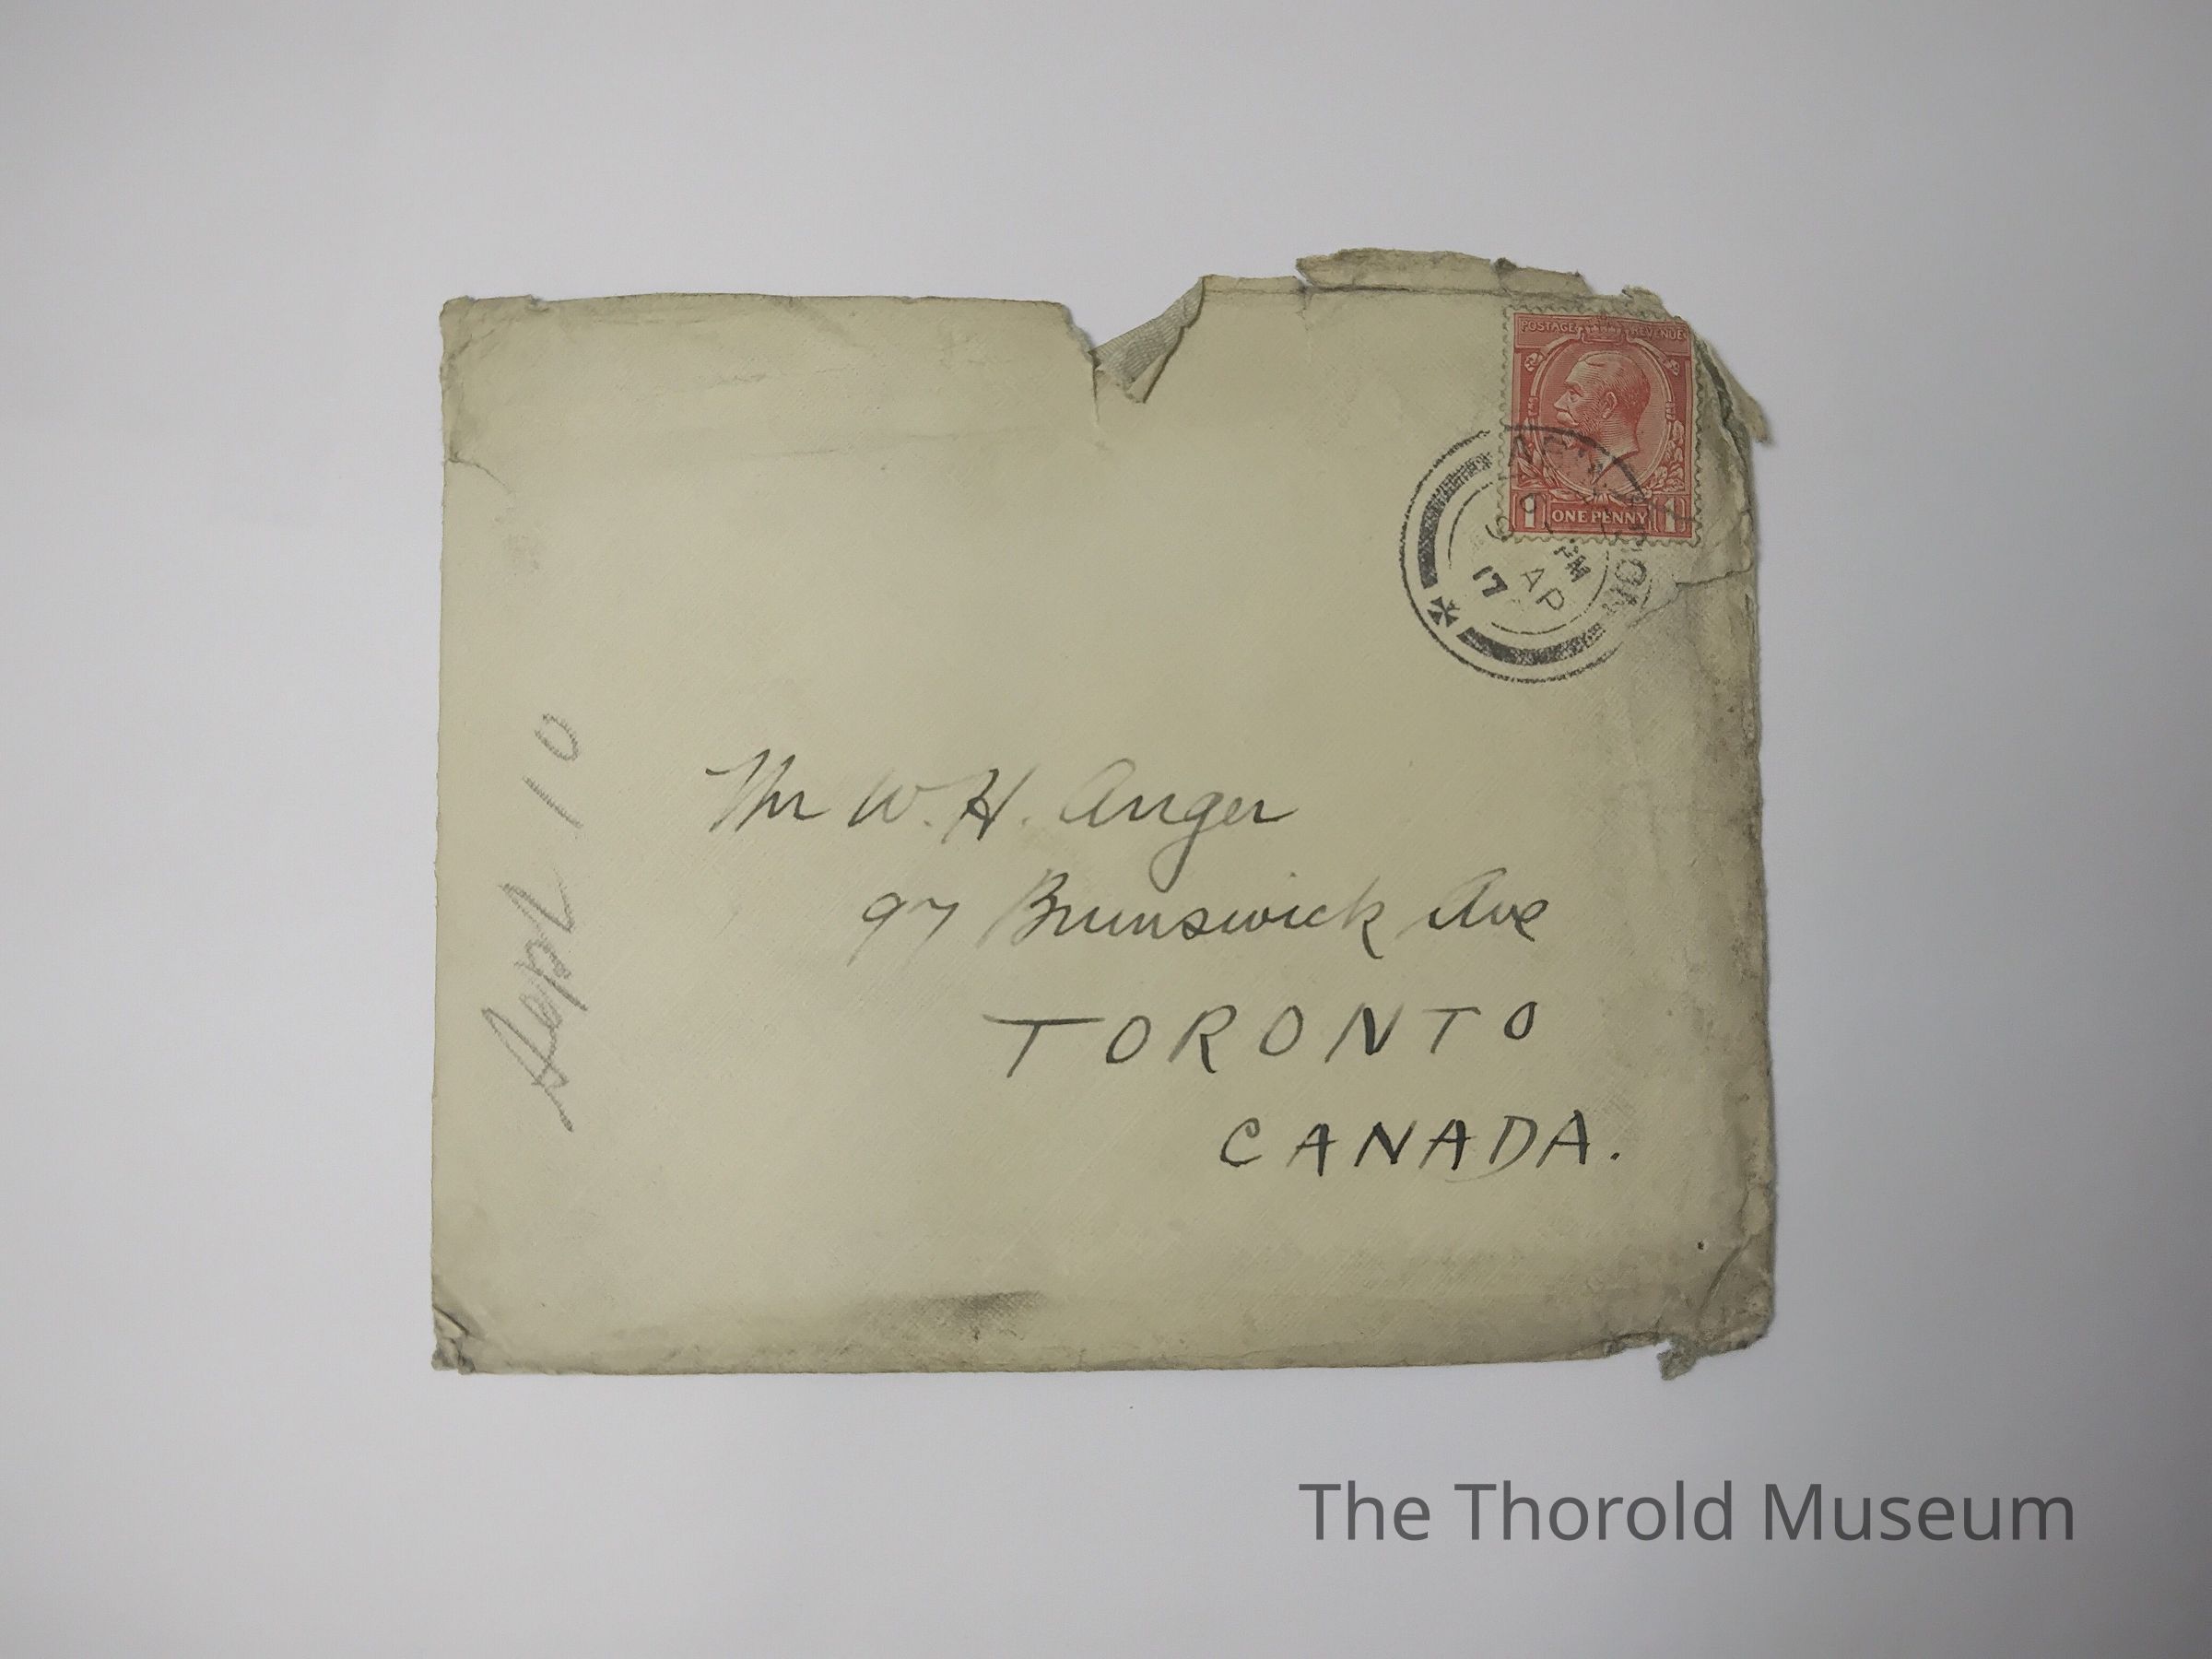 POSTAGE REVENUE
1 ONE PENNY 1
PM
AP
17
Sept 10
Mr W. H. Anger
97 Brunswick Ave
TORONTO
CANADA.
The Thorold Museum